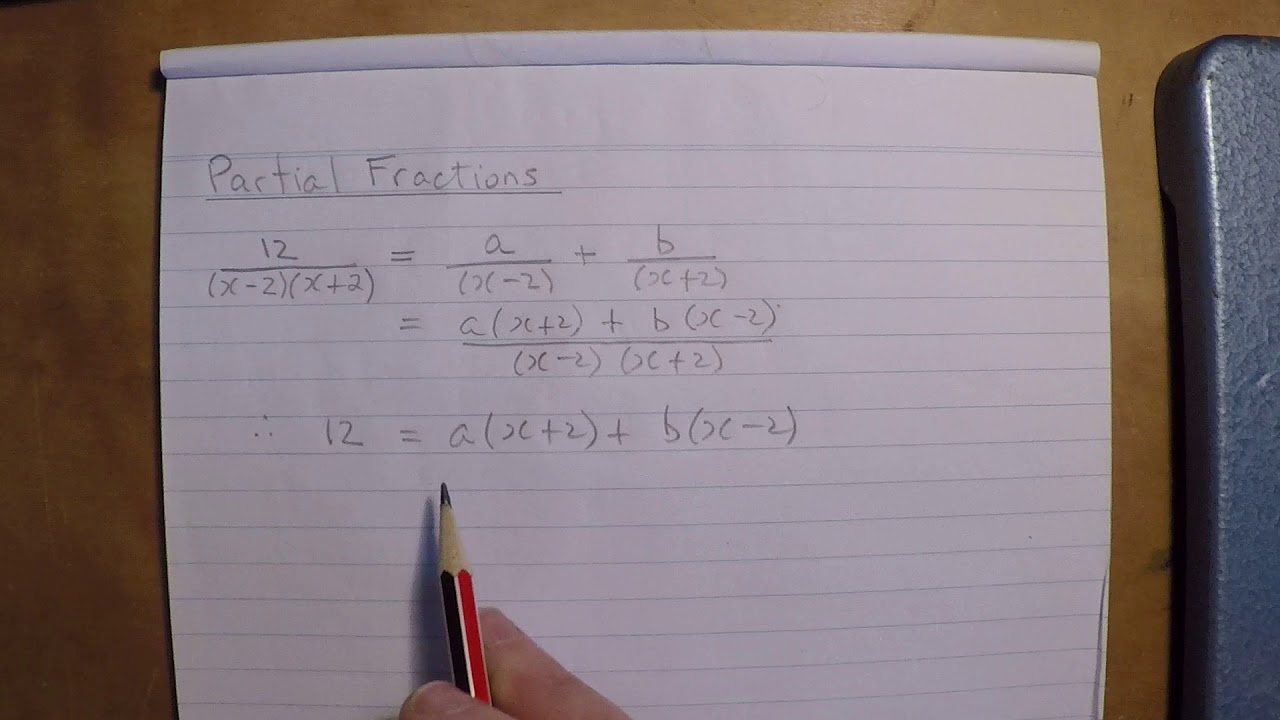 Partial Fractions
12/(x-2)(x+2) = a/(x-2) + b/(x+2)
= a(x+2) + b(x-2)/(x-2)(x+2)
∴ 12 = a(x+2) + b(x-2)